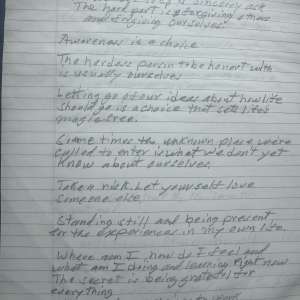 sincerely ask
The hard part is forgiving others
and forgiving ourselves.
Awareness is a choice
The hardest person to be honest with
is usually ourselves
Letting go of our ideas about how life
should go is a choice that sets lifes
jungle free.
Sometimes the unknown place were
called to enter is what we don't yet
know about ourselves.
Take a risk. Let yourself love
someone else
Standing still and being present
for the experiences in my own life.
Where am I, how do I feel and
what am I doing and learning right now
The secret is being grateful for
everything